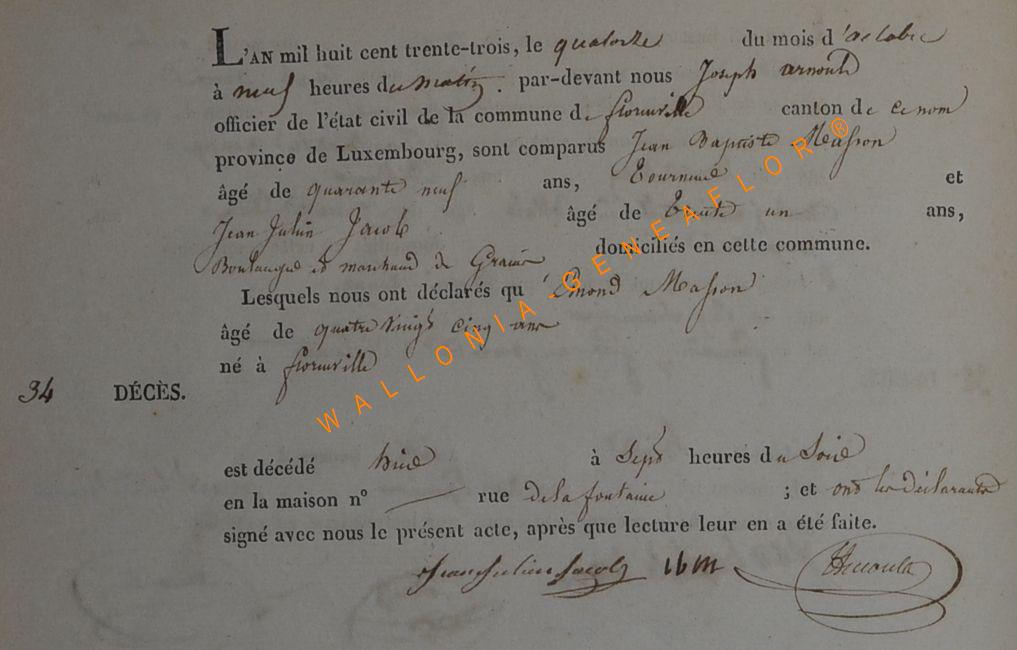 L'AN mil huit cent trente-trois, le quatorze du mois d'octobre
à neuf heures du matin. par-devant nous Joseph arnould
officier de l'état civil de la commune de florenville canton de ce nom
province de Luxembourg, sont comparus Jean Baptiste Masson
âgé de quarante neuf ans, et
Jean Julien Jacob âgé de trente un ans,
Boulanger et marchand de Grains domiciliés en cette commune.
Lesquels nous ont déclarés qu'Emond Masson
âgé de quatre vingt cinq ans
né à florenville
34 DÉCÈS.
est décédé hier à Sept heures du Soir
en la maison n° rue de la fontaine ; et ont les déclarants
signé avec nous le présent acte, après que lecture leur en a été faite.
Jean Julien Jacob JBM
WALLONIA-GENEAFLOR®